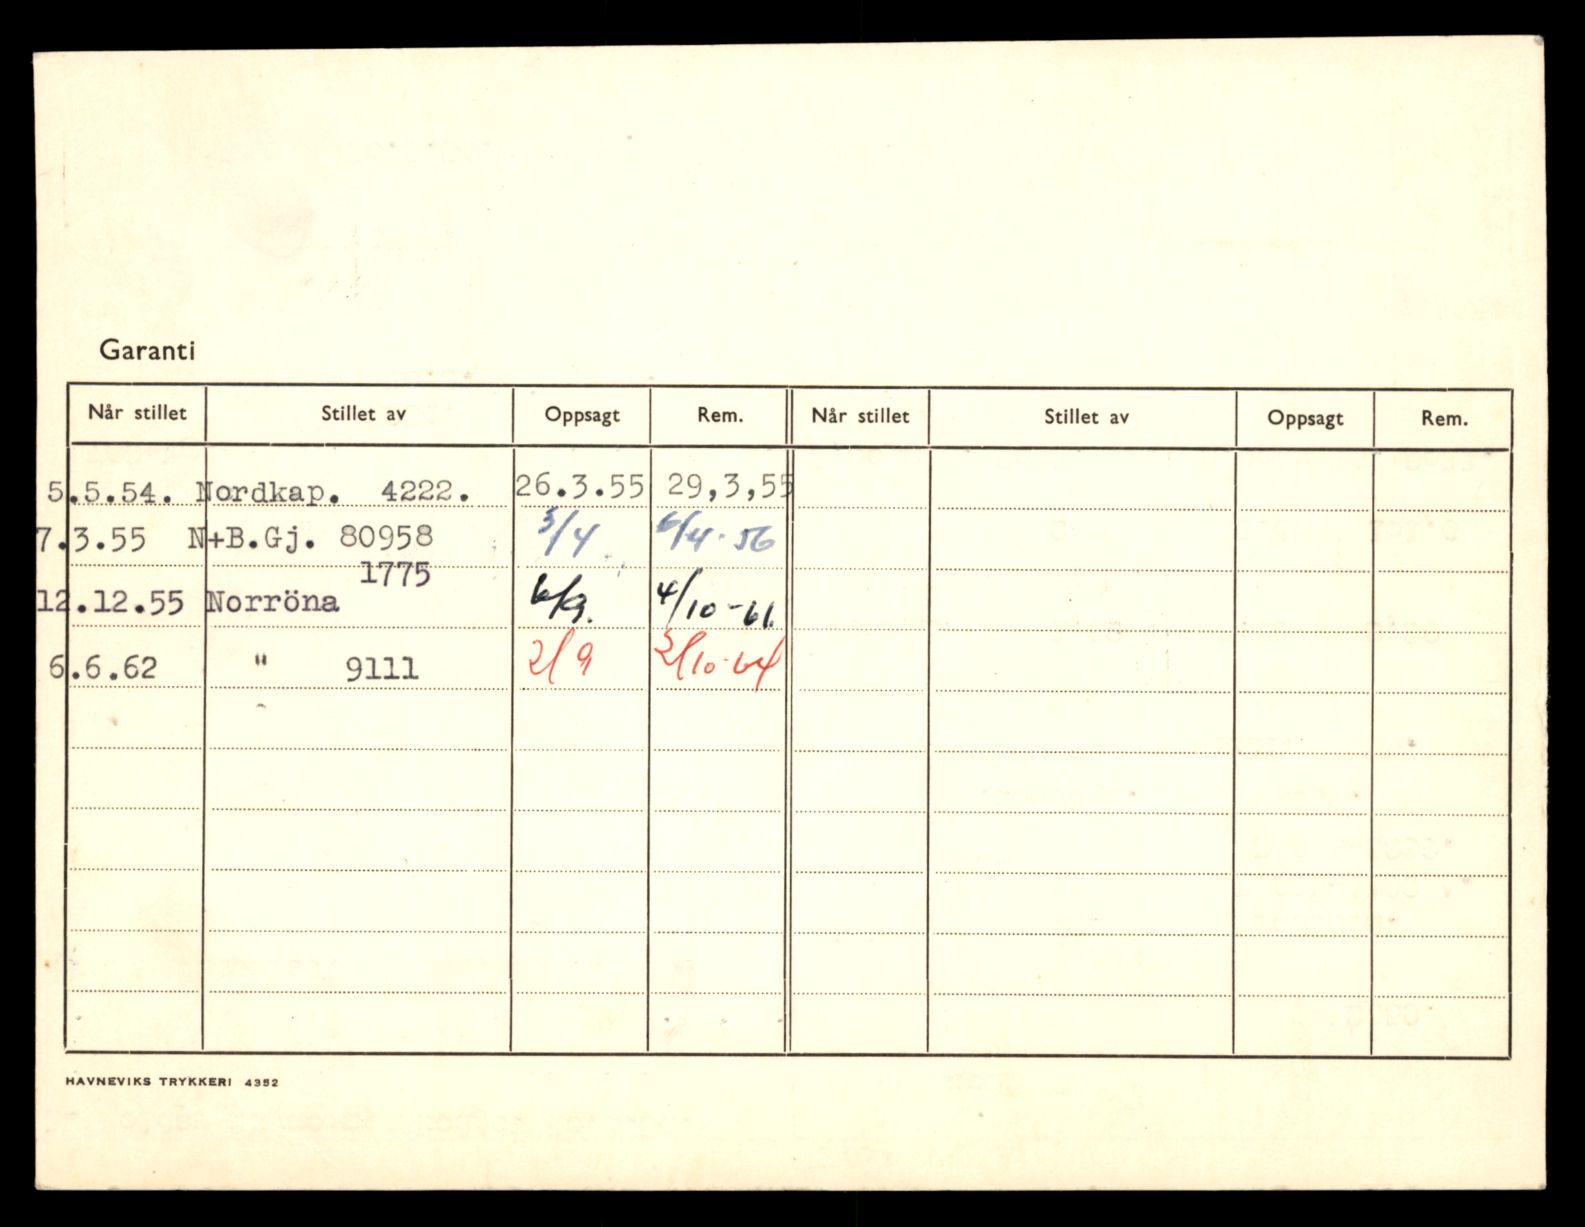 Garanti
Når stillet Stillet av Oppsagt Rem. Når stillet Stillet av Oppsagt Rem.
5.5.54. Nordkap. 4222. 26.3.55 29,3,55
7.3.55 N+B.Gj. 80958 3/4 6/4-56
1775
12.12.55 Norröna 6/9. 4/10-61.
6.6.62 " 9111 2/9 2/10-64
HAVNEVIKS TRYKKERI 4352